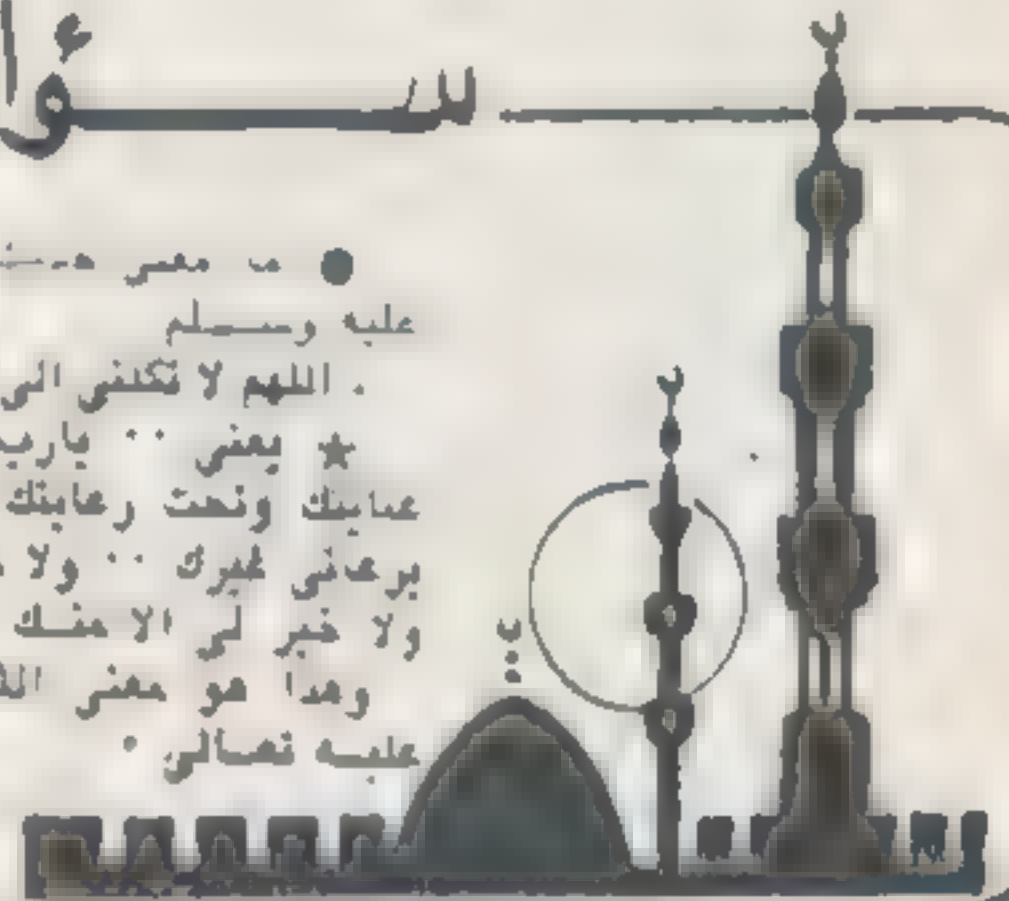 سؤا
● ما معنى هـ
عليه وسلم
. اللهم لا تكلنى الى
★ يعنى .. يارب
عنايتك وتحت رعايتك
يرعانى غيرك .. ولا
ولا خير لى الا منك
وهذا هو معنى
عليه تعالى .